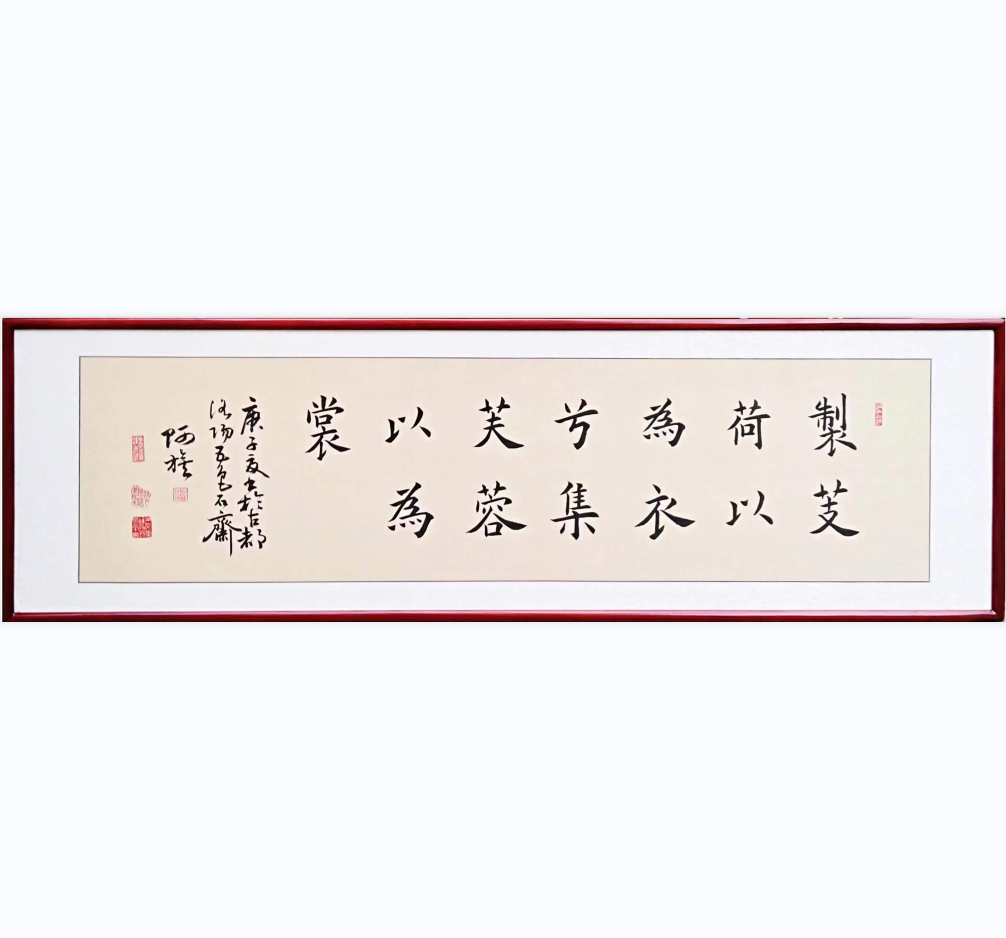 製芰
荷以
為衣
兮集
芙蓉
以為
裳
庚子夏書於古都
洛陽五色石齋
阿旋